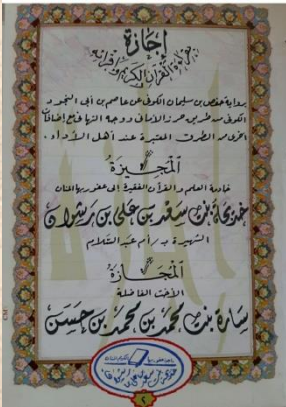 إجازة
بقراءة القرآن الكريم وإقرائه
برواية حفص بن سليمان الكوفي عن عاصم بن أبي النجود
الكوفي من طريق حرز الأماني ووجه التهاني مع إضافات
أخرى من الطرق المعتبرة عند أهل الأداء.
المجيزة
خادمة العلم والقرآن الفقيرة إلى عفو ربها المنان
خديجة بنت سعد بن علي بن رشوان
الشهيرة بـ / أم عبد السلام
المجازة
الأخت الفاضلة
سارة بنت محمد بن محمد بن حسن